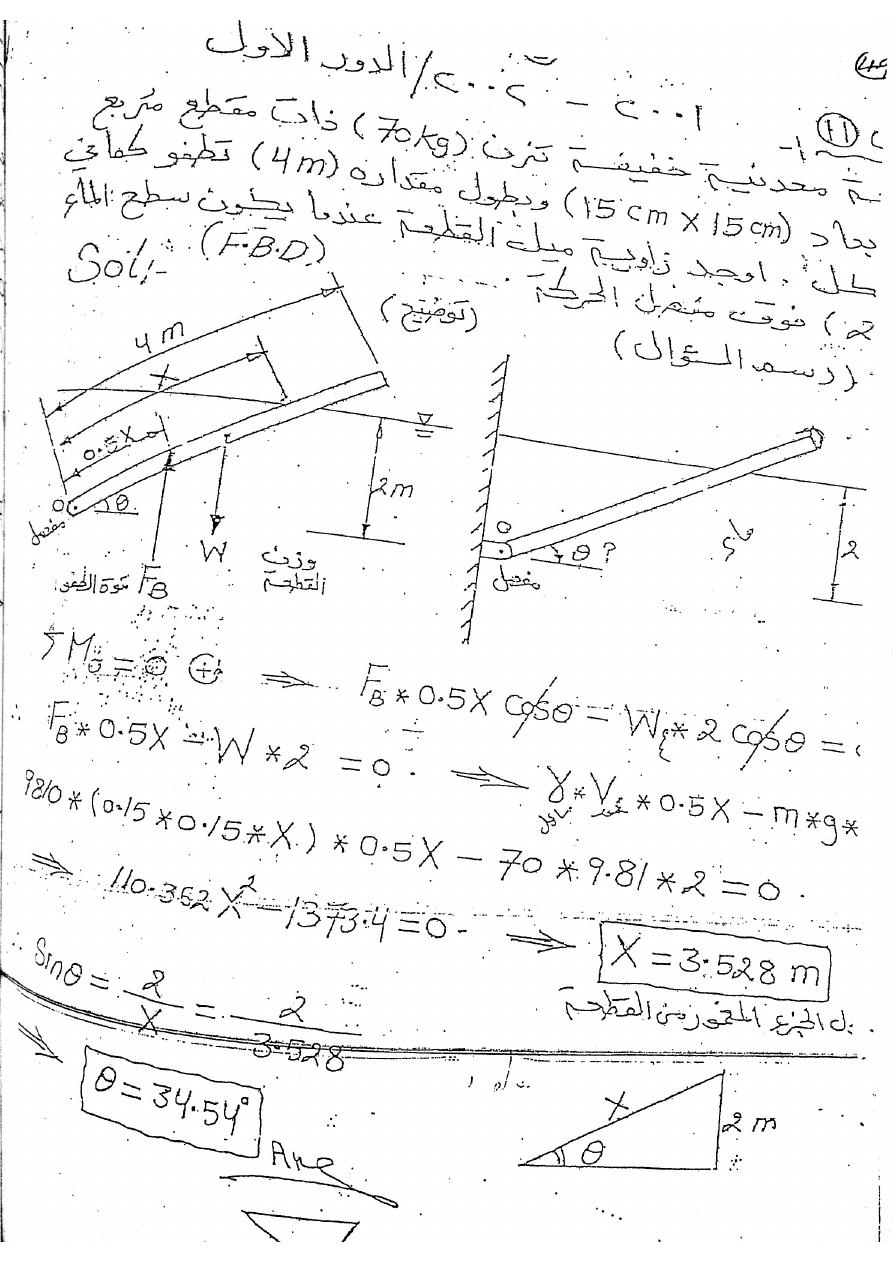 ٢٠٠١ - ٢٠٠٢ / الدور الاول
(11)
معدنية خفيفة تزن (70kg) ذات مقطع مربع
(15cm X 15cm) وبطول مقداره (4m) تطفو كما في
اوجد زاوية ميل القطعة عندما يكون سطح الماء
2) فوق مفصل الحركة ..... (F.B.D)
Sol:-
(توضيح)
(رسم السؤال)
4 m
X
0.5X
2m
O
θ
مفصل
F_B
قوة الطفو
W
وزن
القطعة
O
θ ?
مفصل
ماء
2
ΣM_o = 0 (+) ⇒ F_B * 0.5X cosθ - W * 2 cosθ =
F_B * 0.5X - W * 2 = 0 . ⇒ γ * V * 0.5X - m * g *
9810 * (0.15 * 0.15 * X) * 0.5X - 70 * 9.81 * 2 = 0 .
⇒ 110.362 X² - 1373.4 = 0 . ⇒ X = 3.528 m
الجزء المغمور من القطعة
Sinθ = 2/X = 2/3.528
⇒ θ = 34.54°
Ans
X
2 m
θ